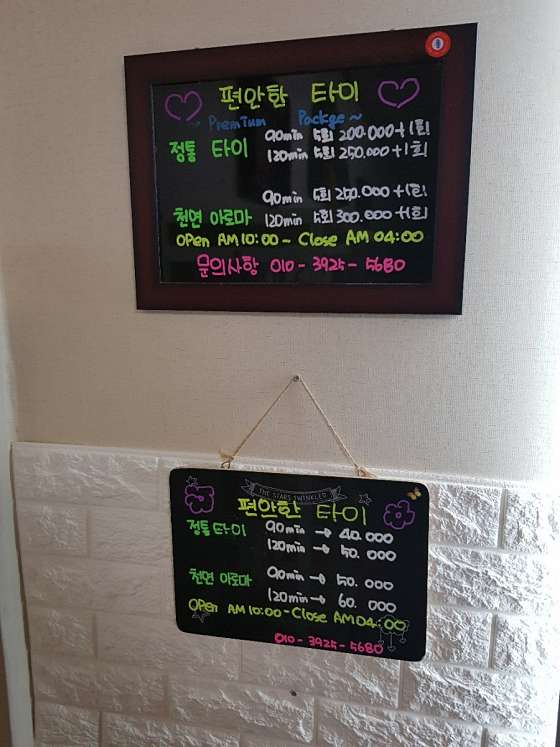 편안한 타이
Premium Packge~
정통 타이 90min 5회 200.000+1회
120min 5회 250.000+1회
90min 5회 250.000+1회
천연 아로마 120min 5회 300.000+1회
OPen AM 10:00~ Close AM 04:00
문의사항 010-3925-5680
THE STARS TWINKLED
편안한 타이
정통타이 90min → 40.000
120min → 50.000
천연 아로마 90min → 50.000
120min → 60.000
OPen AM 10:00-Close AM 04:00
010-3925-5680